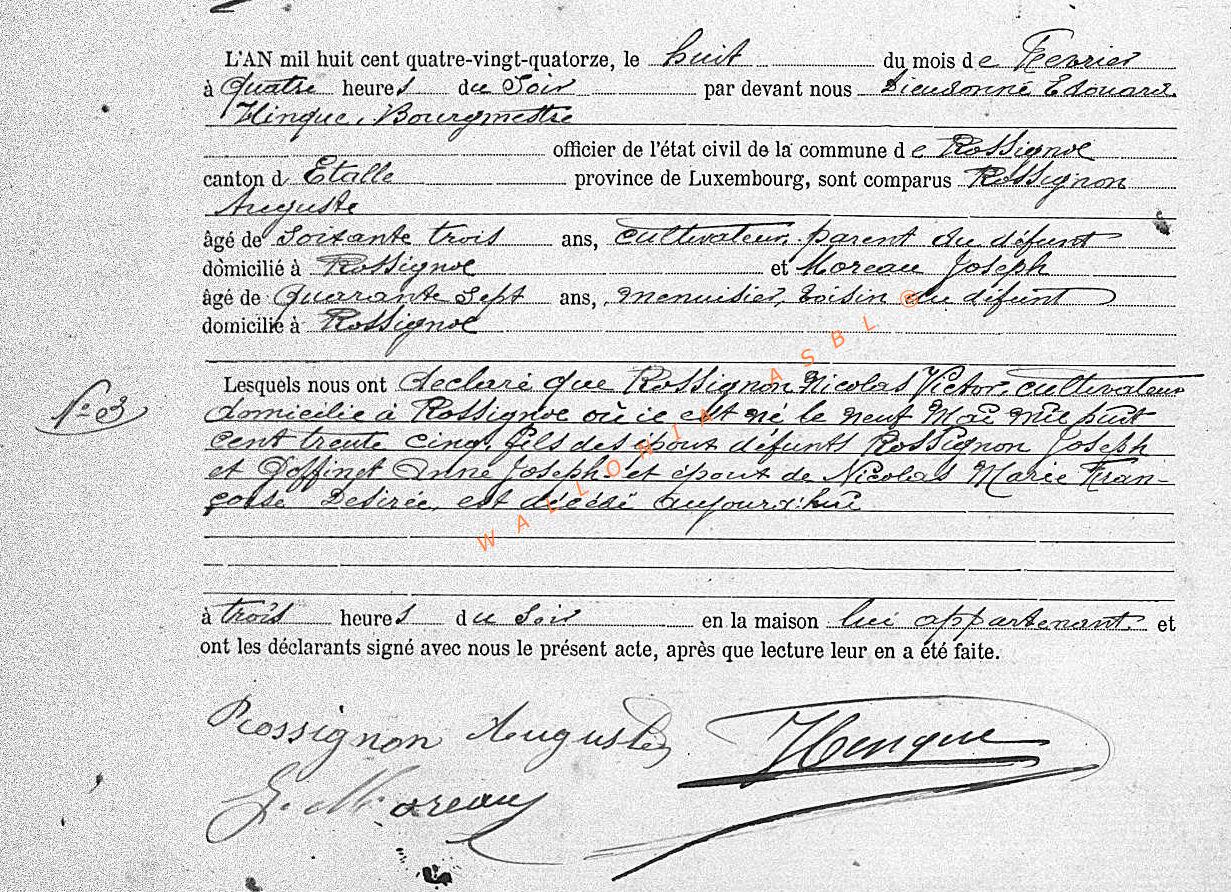 L'AN mil huit cent quatre-vingt-quatorze, le huit du mois de Fevrier
à quatre heures du Soir par devant nous Dieudonné Edouard
Hinque, Bourgmestre
officier de l'état civil de la commune de Rossignol
canton d Etalle province de Luxembourg, sont comparus Rossignon
Auguste
âgé de soixante trois ans, cultivateur, parent du défunt
domicilié à Rossignol et Moreau Joseph
âgé de quarante sept ans, menuisier, voisin du défunt
domicilié à Rossignol
Lesquels nous ont declarré que Rossignon Nicolas Victor, cultivateur
N° 03
domicilié à Rossignol où il est né le neuf Mai mil huit
cent trente cinq, fils des époux défunts Rossignon Joseph
et Goffinet Anne Joseph et époux de Nicolas Marie Fran-
çoise Desirée, est décédé aujourd'hui
à trois heures du Soir en la maison lui appartenant et
ont les déclarants signé avec nous le présent acte, après que lecture leur en a été faite.
Rossignon Auguste Hinque
J. Moreau
WALLONIA ASBL ©